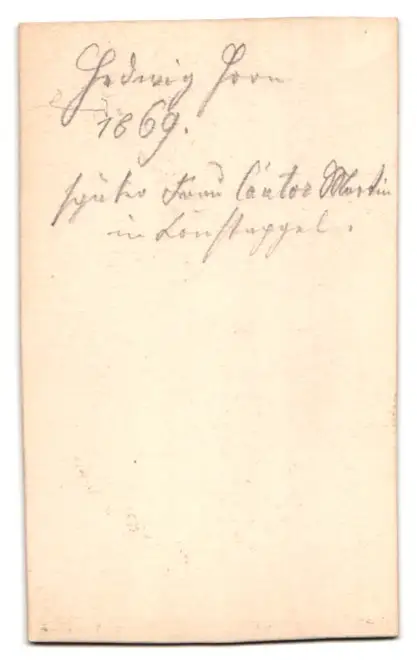 Hedwig Horn
1869.
später Frau Cantor Martin
in Constappel.